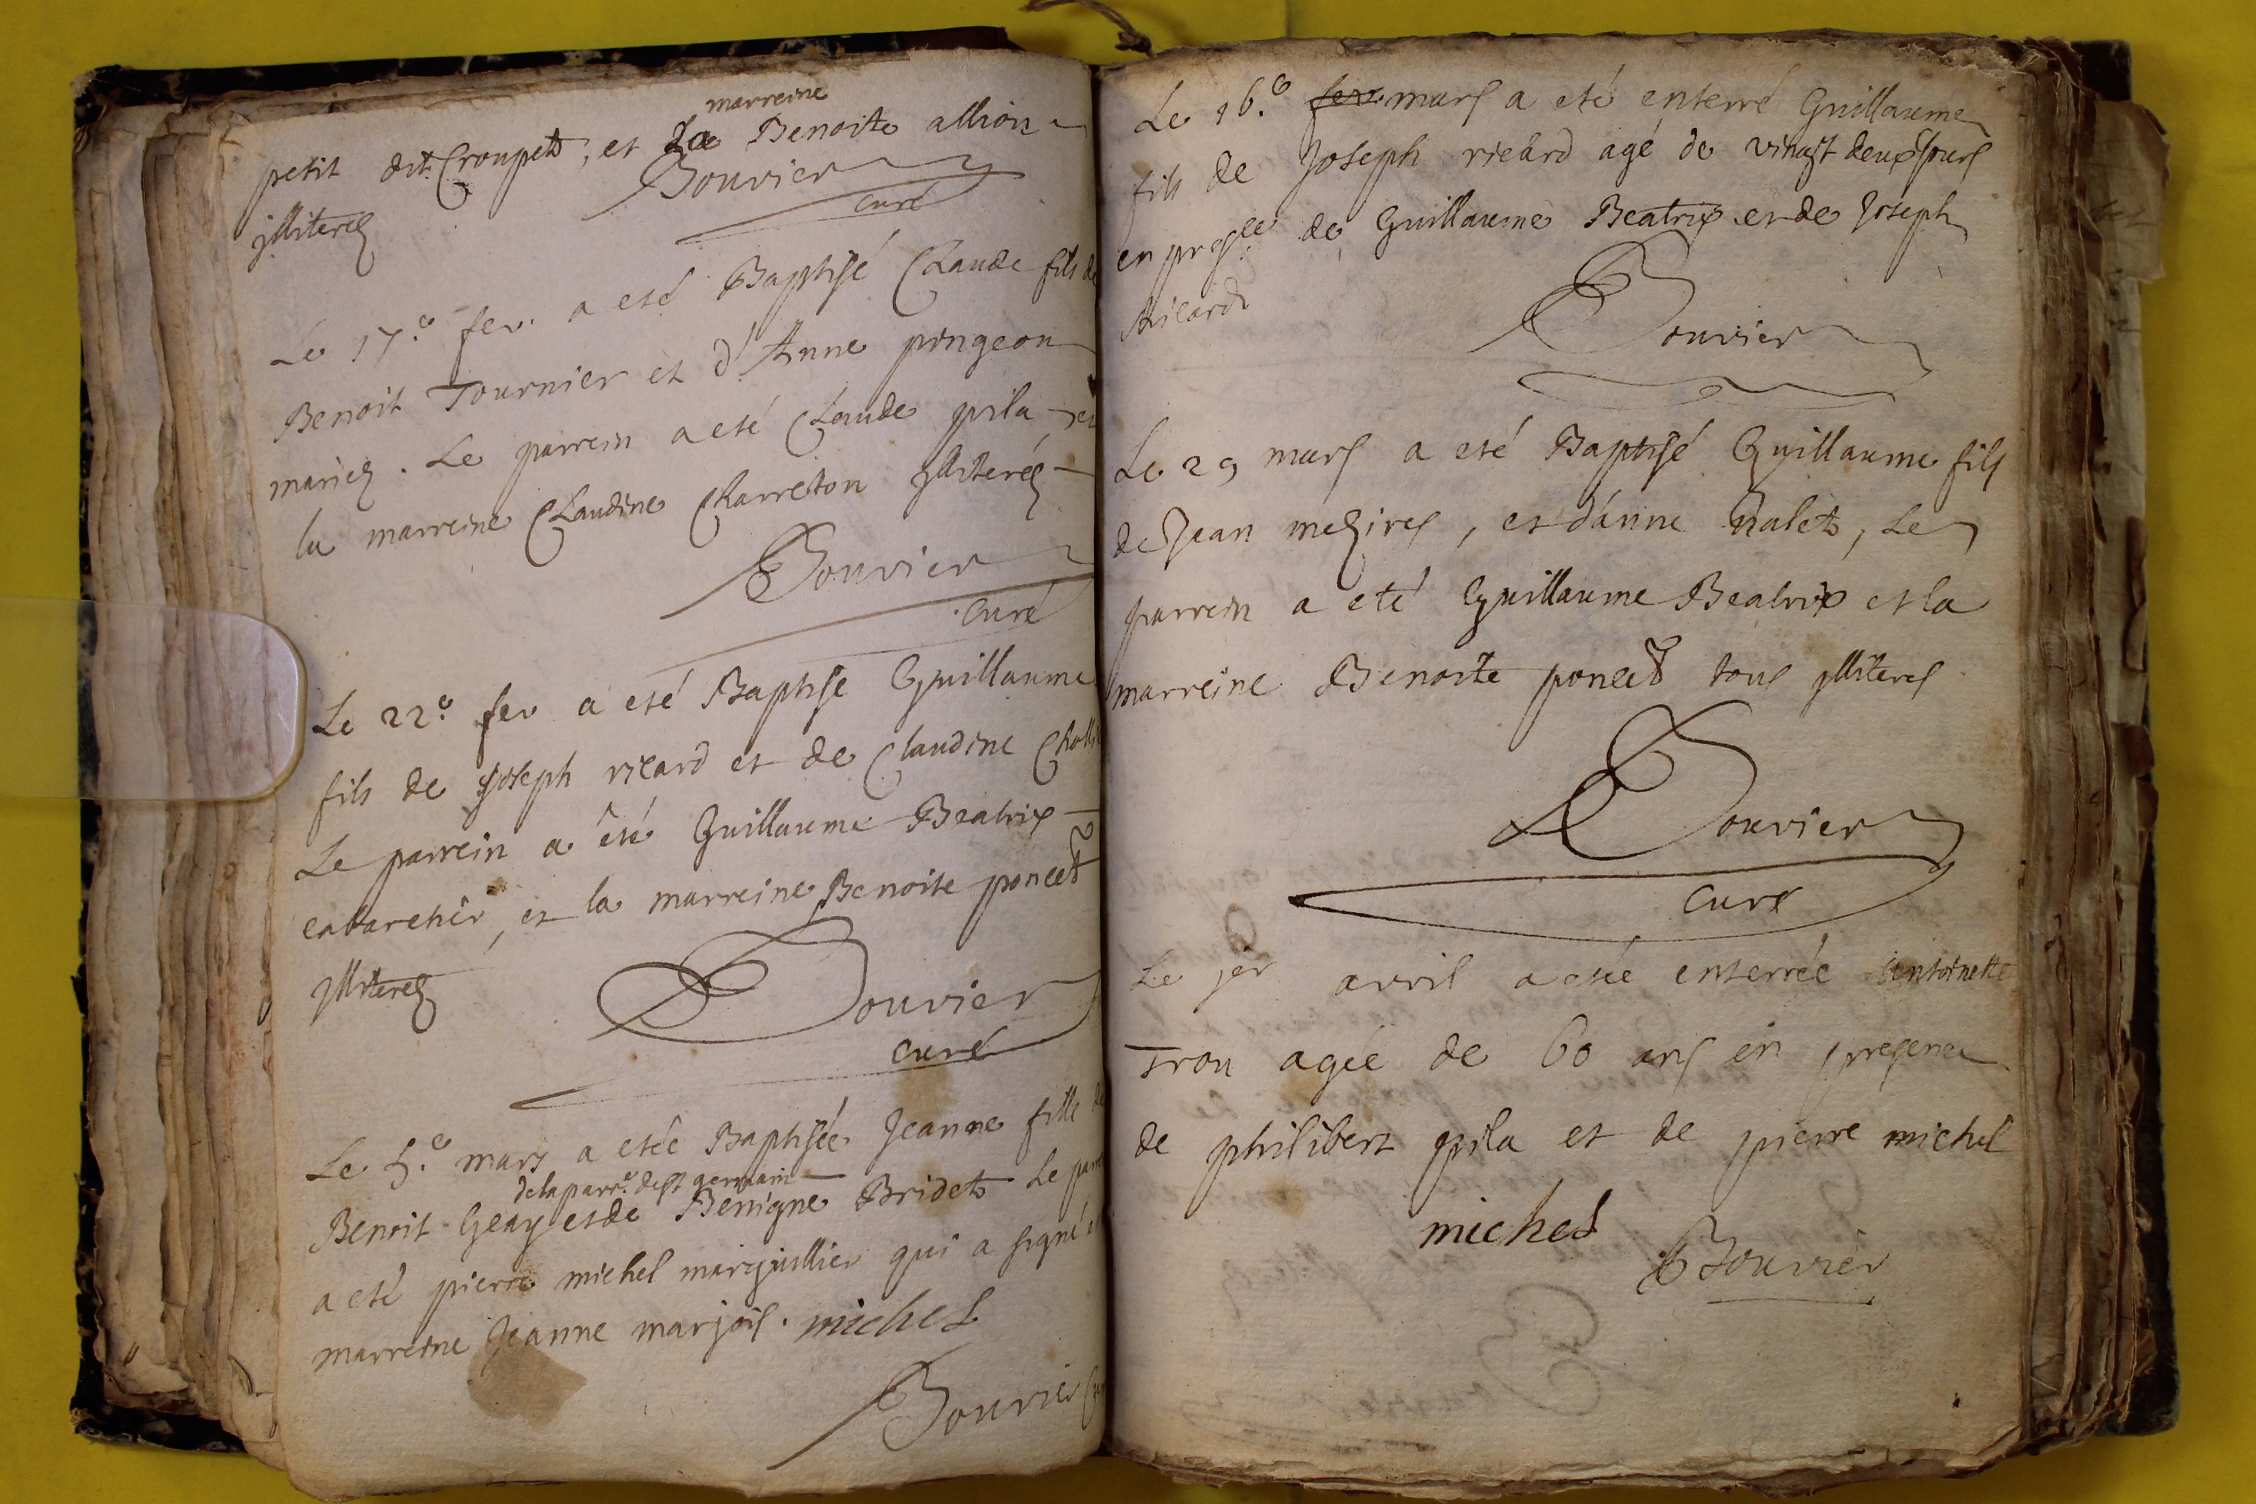 marreine
petit dit Croupet, et La Benoite allion
Bouvier
curé
jlliterez
Le 17.e fev. a eté Baptisé Claude fils de
Benoit Tournier et d'Anne pingeon
mariez. Le parrein a eté Claude pila et
la marreine Claudine Charreton jlliteréz
Bouvier
curé
Le 22.e fev a eté Baptisé Guillaume
fils de Joseph ricard et de Claudine
Le parrein a été Guillaume Beatrix
cabaretier, et la marreine Benoite poncet
jlliterez
Bouvier
curé
Le 5.e mars a etée Baptisée Jeanne fille de
de la parr.e de st germain
Benoit Geay et de Benigne Bridet Le
a eté pierre michel marguillier qui a signé
marreine Jeanne marjois. michel
Bouvier
Le 16.e fev. mars a eté enterré Guillaume
fils de Joseph ricard agé de vingt deux jours
en presce. de Guillaume Beatrix et de Joseph
Ricard
Bouvier
Le 29 mars a eté Baptisé Guillaume fils
de Jean mezires, et d'anne nalet, Le
parrein a eté Guillaume Beatrix et la
marreine Benoite poncet tous jlliterez
Bouvier
curé
Le jer avril a etée enterrée antoinette
Tron agée de 60 ans en presence
de philibert pila et de pierre michel
michel
Bouvier